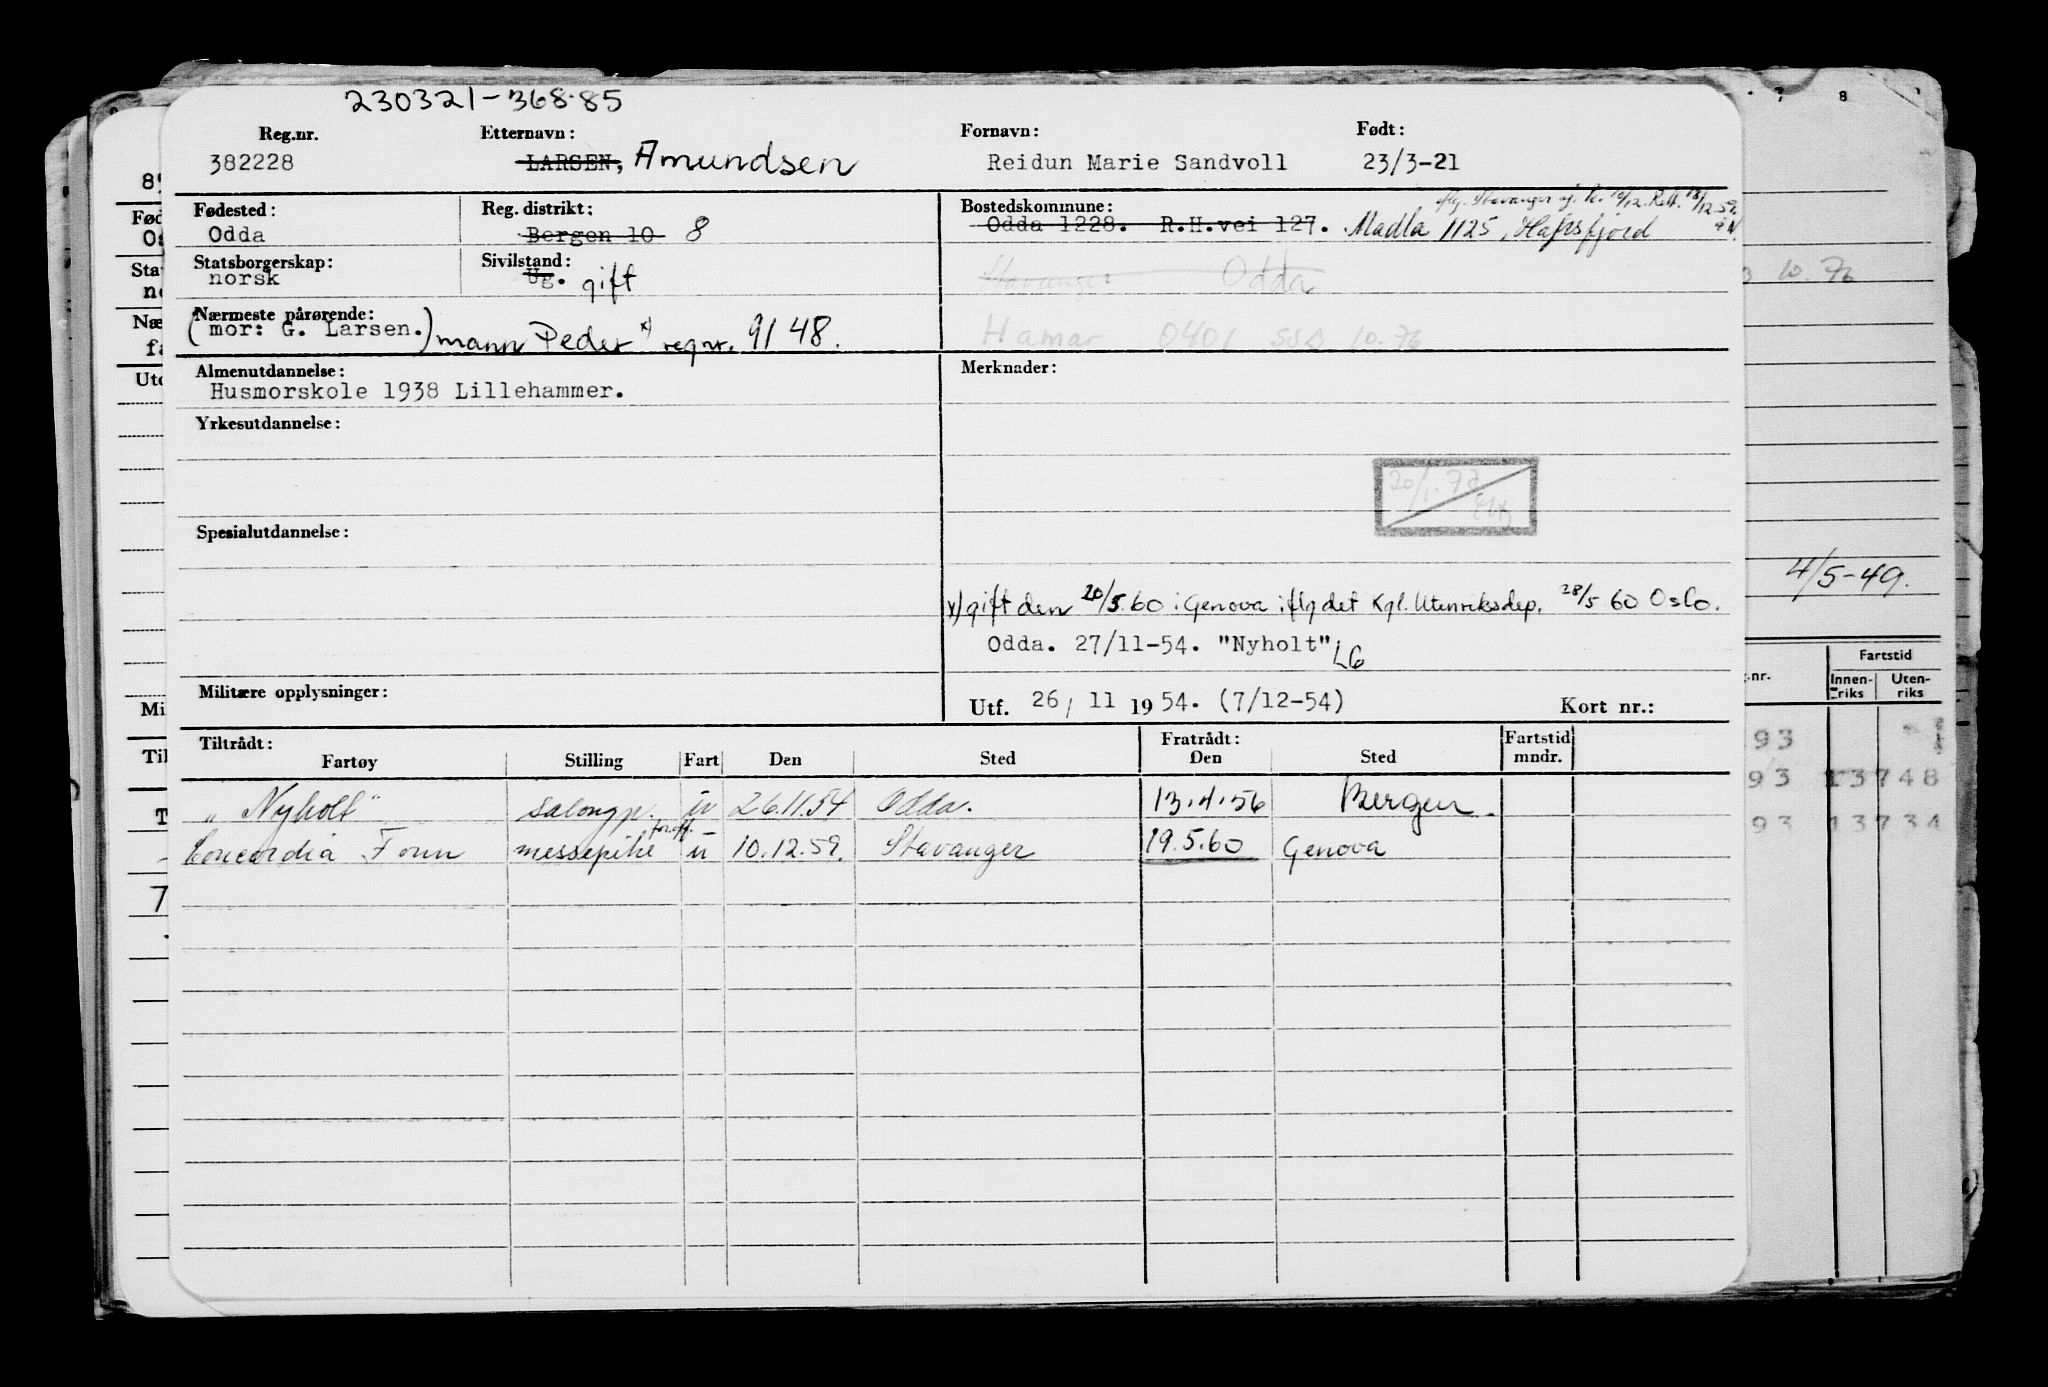 230321-368.85
Reg.nr. Etternavn: Fornavn: Født:
382228 LARSEN, Amundsen Reidun Marie Sandvoll 23/3-21
Fødested: Reg. distrikt: Bostedskommune:
Odda Bergen 10 8 Odda 1228. R.H.vei 127. Madla 1125, Hafrsfjord
Statsborgerskap: Sivilstand:
norsk Ug. gift Stavanger Odda
Nærmeste pårørende:
(mor: G. Larsen.) mann Peder x) regnr. 9148. Hamar 0401 SSB 10.76
Almenutdannelse: Merknader:
Husmorskole 1938 Lillehammer.
Yrkesutdannelse:
20/1.78
Spesialutdannelse:
4/5-49.
x) gift den 20/5.60 i Genova iflg det Kgl. Utenriksdep. 28/5 60 Oslo.
Odda. 27/11-54. "Nyholt" LG
Militære opplysninger: Utf. 26/ 11 1954. (7/12-54) Kort nr.:
Tiltrådt: Fratrådt: Fartstid
Fartøy Stilling Fart Den Sted Den Sted mndr.
"Nyholt" salongp. u 26.11.54 Odda. 13.4.56 Bergen.
Concordia Fonn messepike for.off. u 10.12.59. Stavanger 19.5.60 Genova
Fartstid
Innen-riks Uten-riks
93
93 13748
93 13734
10.76
8